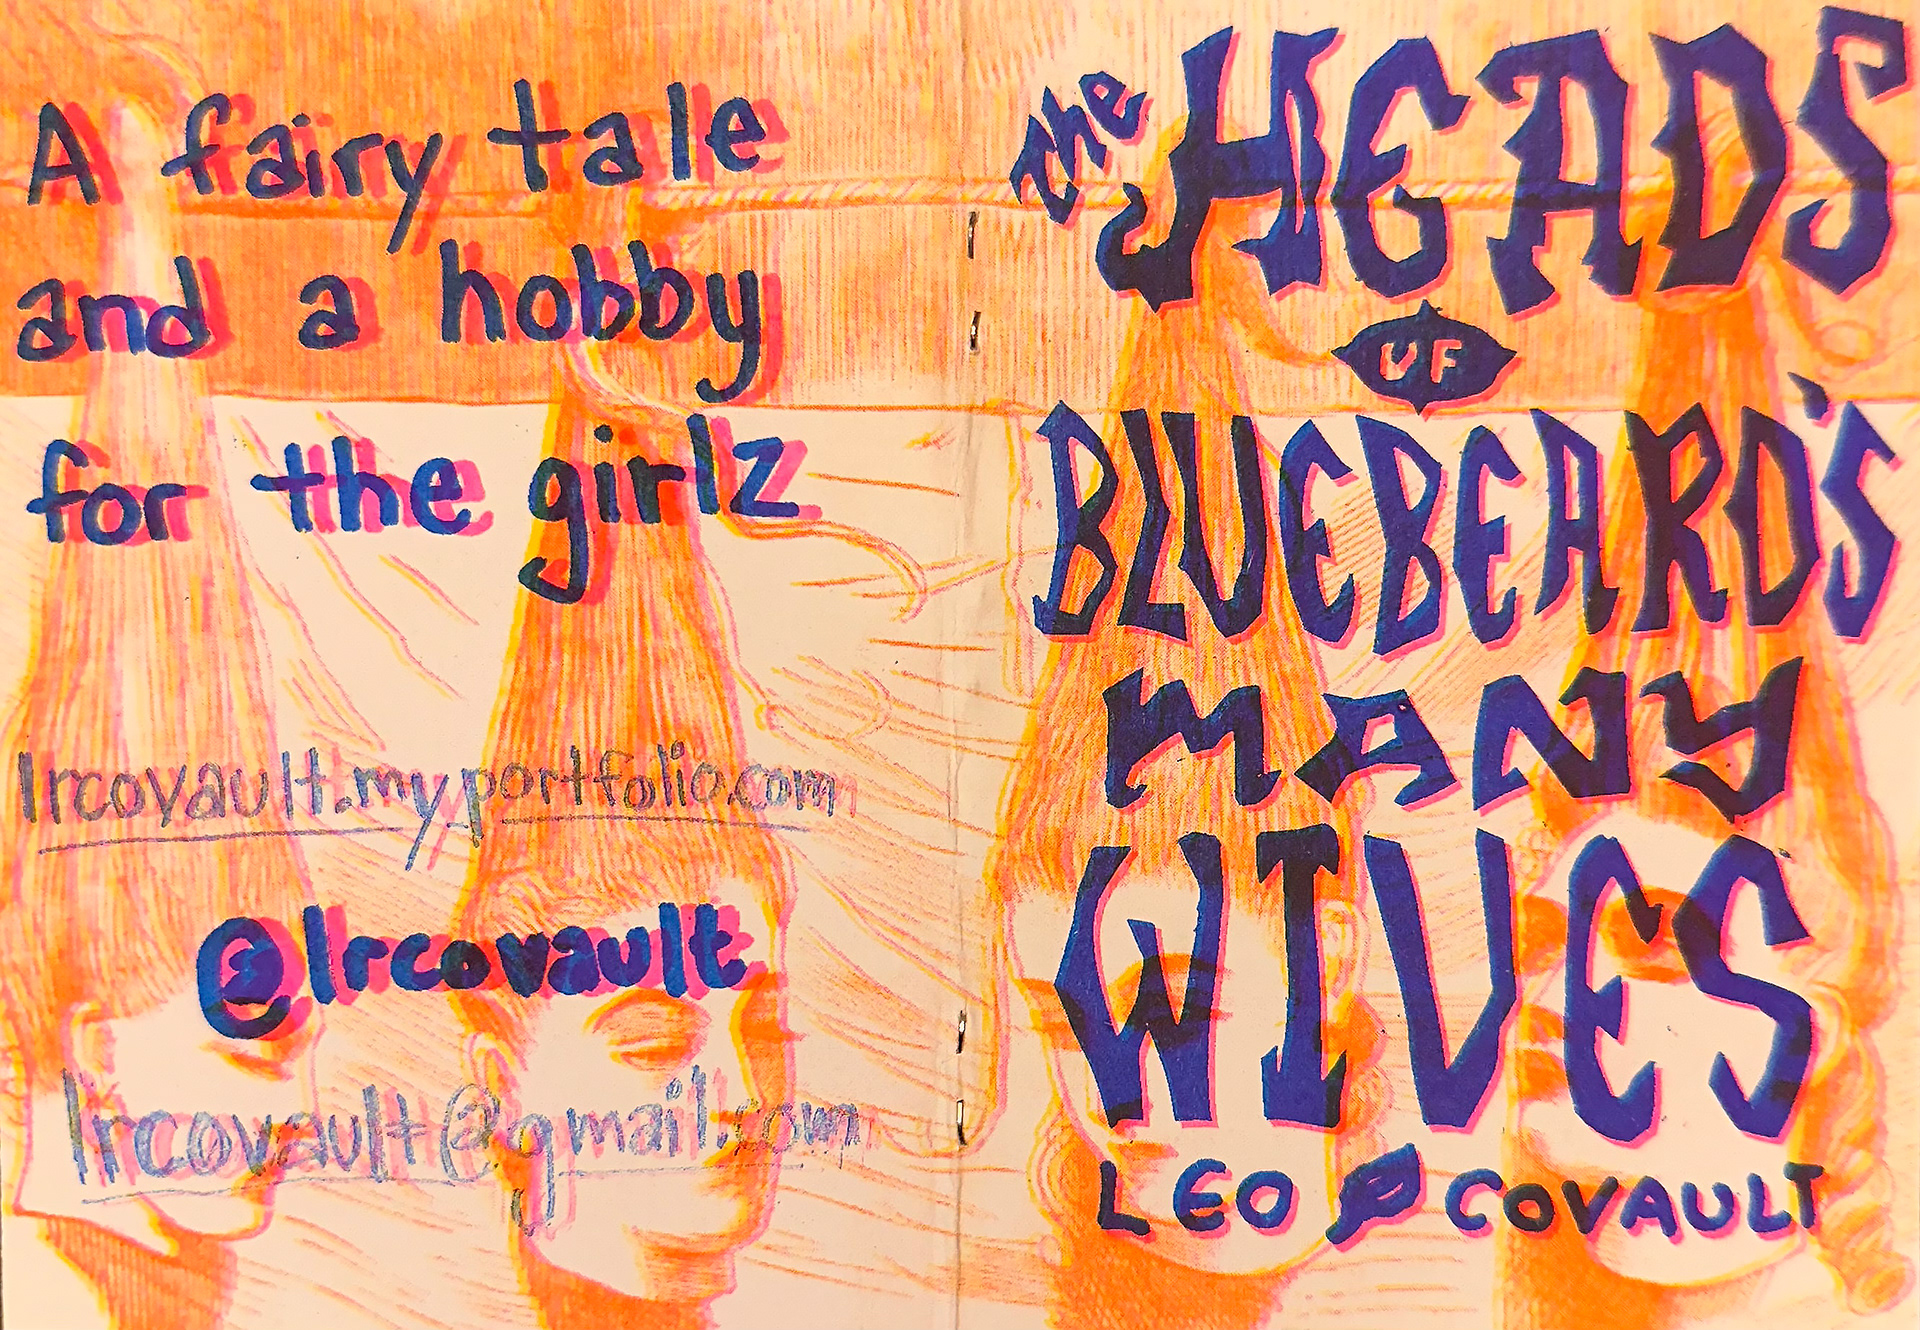 A fairy tale
and a hobby
for the girlz
lrcovault.myportfolio.com
@lrcovault
lrcovault@gmail.com
The HEADS
OF
BLUEBEARD'S
MANY
WIVES
LEO COVAULT